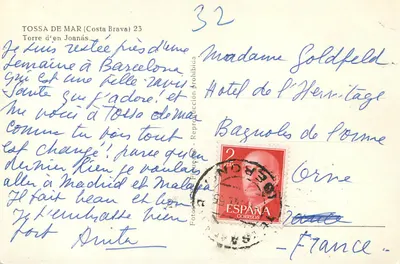 32
TOSSA DE MAR (Costa Brava) 23
Torre d'en Joanás
Je suis restée près d'une
semaine à Barcelona
qui est une ville ravis
sante que j'adore, et
me voici à Tossa de mar
comme tu vois tout
est changé! parce qu'en
dernier lieu je voulais
aller à Madrid et Malaga
Il fait beau et
Je t'embrasse bien
fort Anita
Reproducción prohibida
Madame Goldfeld
Hotel de l'Hermitage
Bagnoles de l'orne
Orne
France
2
ESPAÑA
CORREOS
GERONA